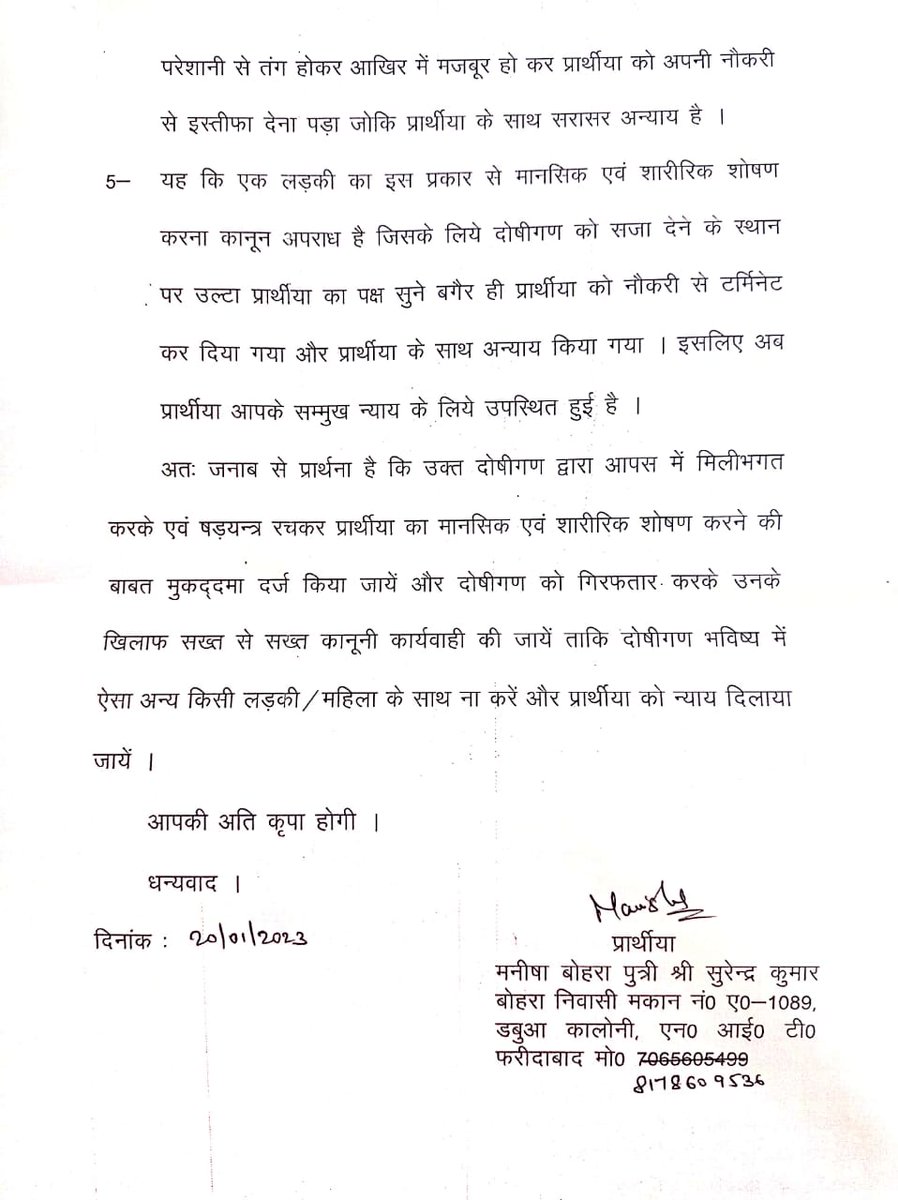 परेशानी से तंग होकर आखिर में मजबूर हो कर प्रार्थीया को अपनी नौकरी
से इस्तीफा देना पड़ा जोकि प्रार्थीया के साथ सरासर अन्याय है ।
5— यह कि एक लड़की का इस प्रकार से मानसिक एवं शारीरिक शोषण
करना कानून अपराध है जिसके लिये दोषीगण को सजा देने के स्थान
पर उल्टा प्रार्थीया का पक्ष सुने बगैर ही प्रार्थीया को नौकरी से टर्मिनेट
कर दिया गया और प्रार्थीया के साथ अन्याय किया गया । इसलिए अब
प्रार्थीया आपके सम्मुख न्याय के लिये उपस्थित हुई है ।
अतः जनाब से प्रार्थना है कि उक्त दोषीगण द्वारा आपस में मिलीभगत
करके एवं षड़यन्त्र रचकर प्रार्थीया का मानसिक एवं शारीरिक शोषण करने की
बाबत मुकद्दमा दर्ज किया जायें और दोषीगण को गिरफतार करके उनके
खिलाफ सख्त से सख्त कानूनी कार्यवाही की जायें ताकि दोषीगण भविष्य में
ऐसा अन्य किसी लड़की/महिला के साथ ना करें और प्रार्थीया को न्याय दिलाया
जायें ।
आपकी अति कृपा होगी ।
धन्यवाद ।
दिनांक : 20/01/2023
Manisha
प्रार्थीया
मनीषा बोहरा पुत्री श्री सुरेन्द्र कुमार
बोहरा निवासी मकान नं0 ए0—1089,
डबुआ कालोनी, एन0 आई0 टी0
फरीदाबाद मो0 7065605499
8178609536